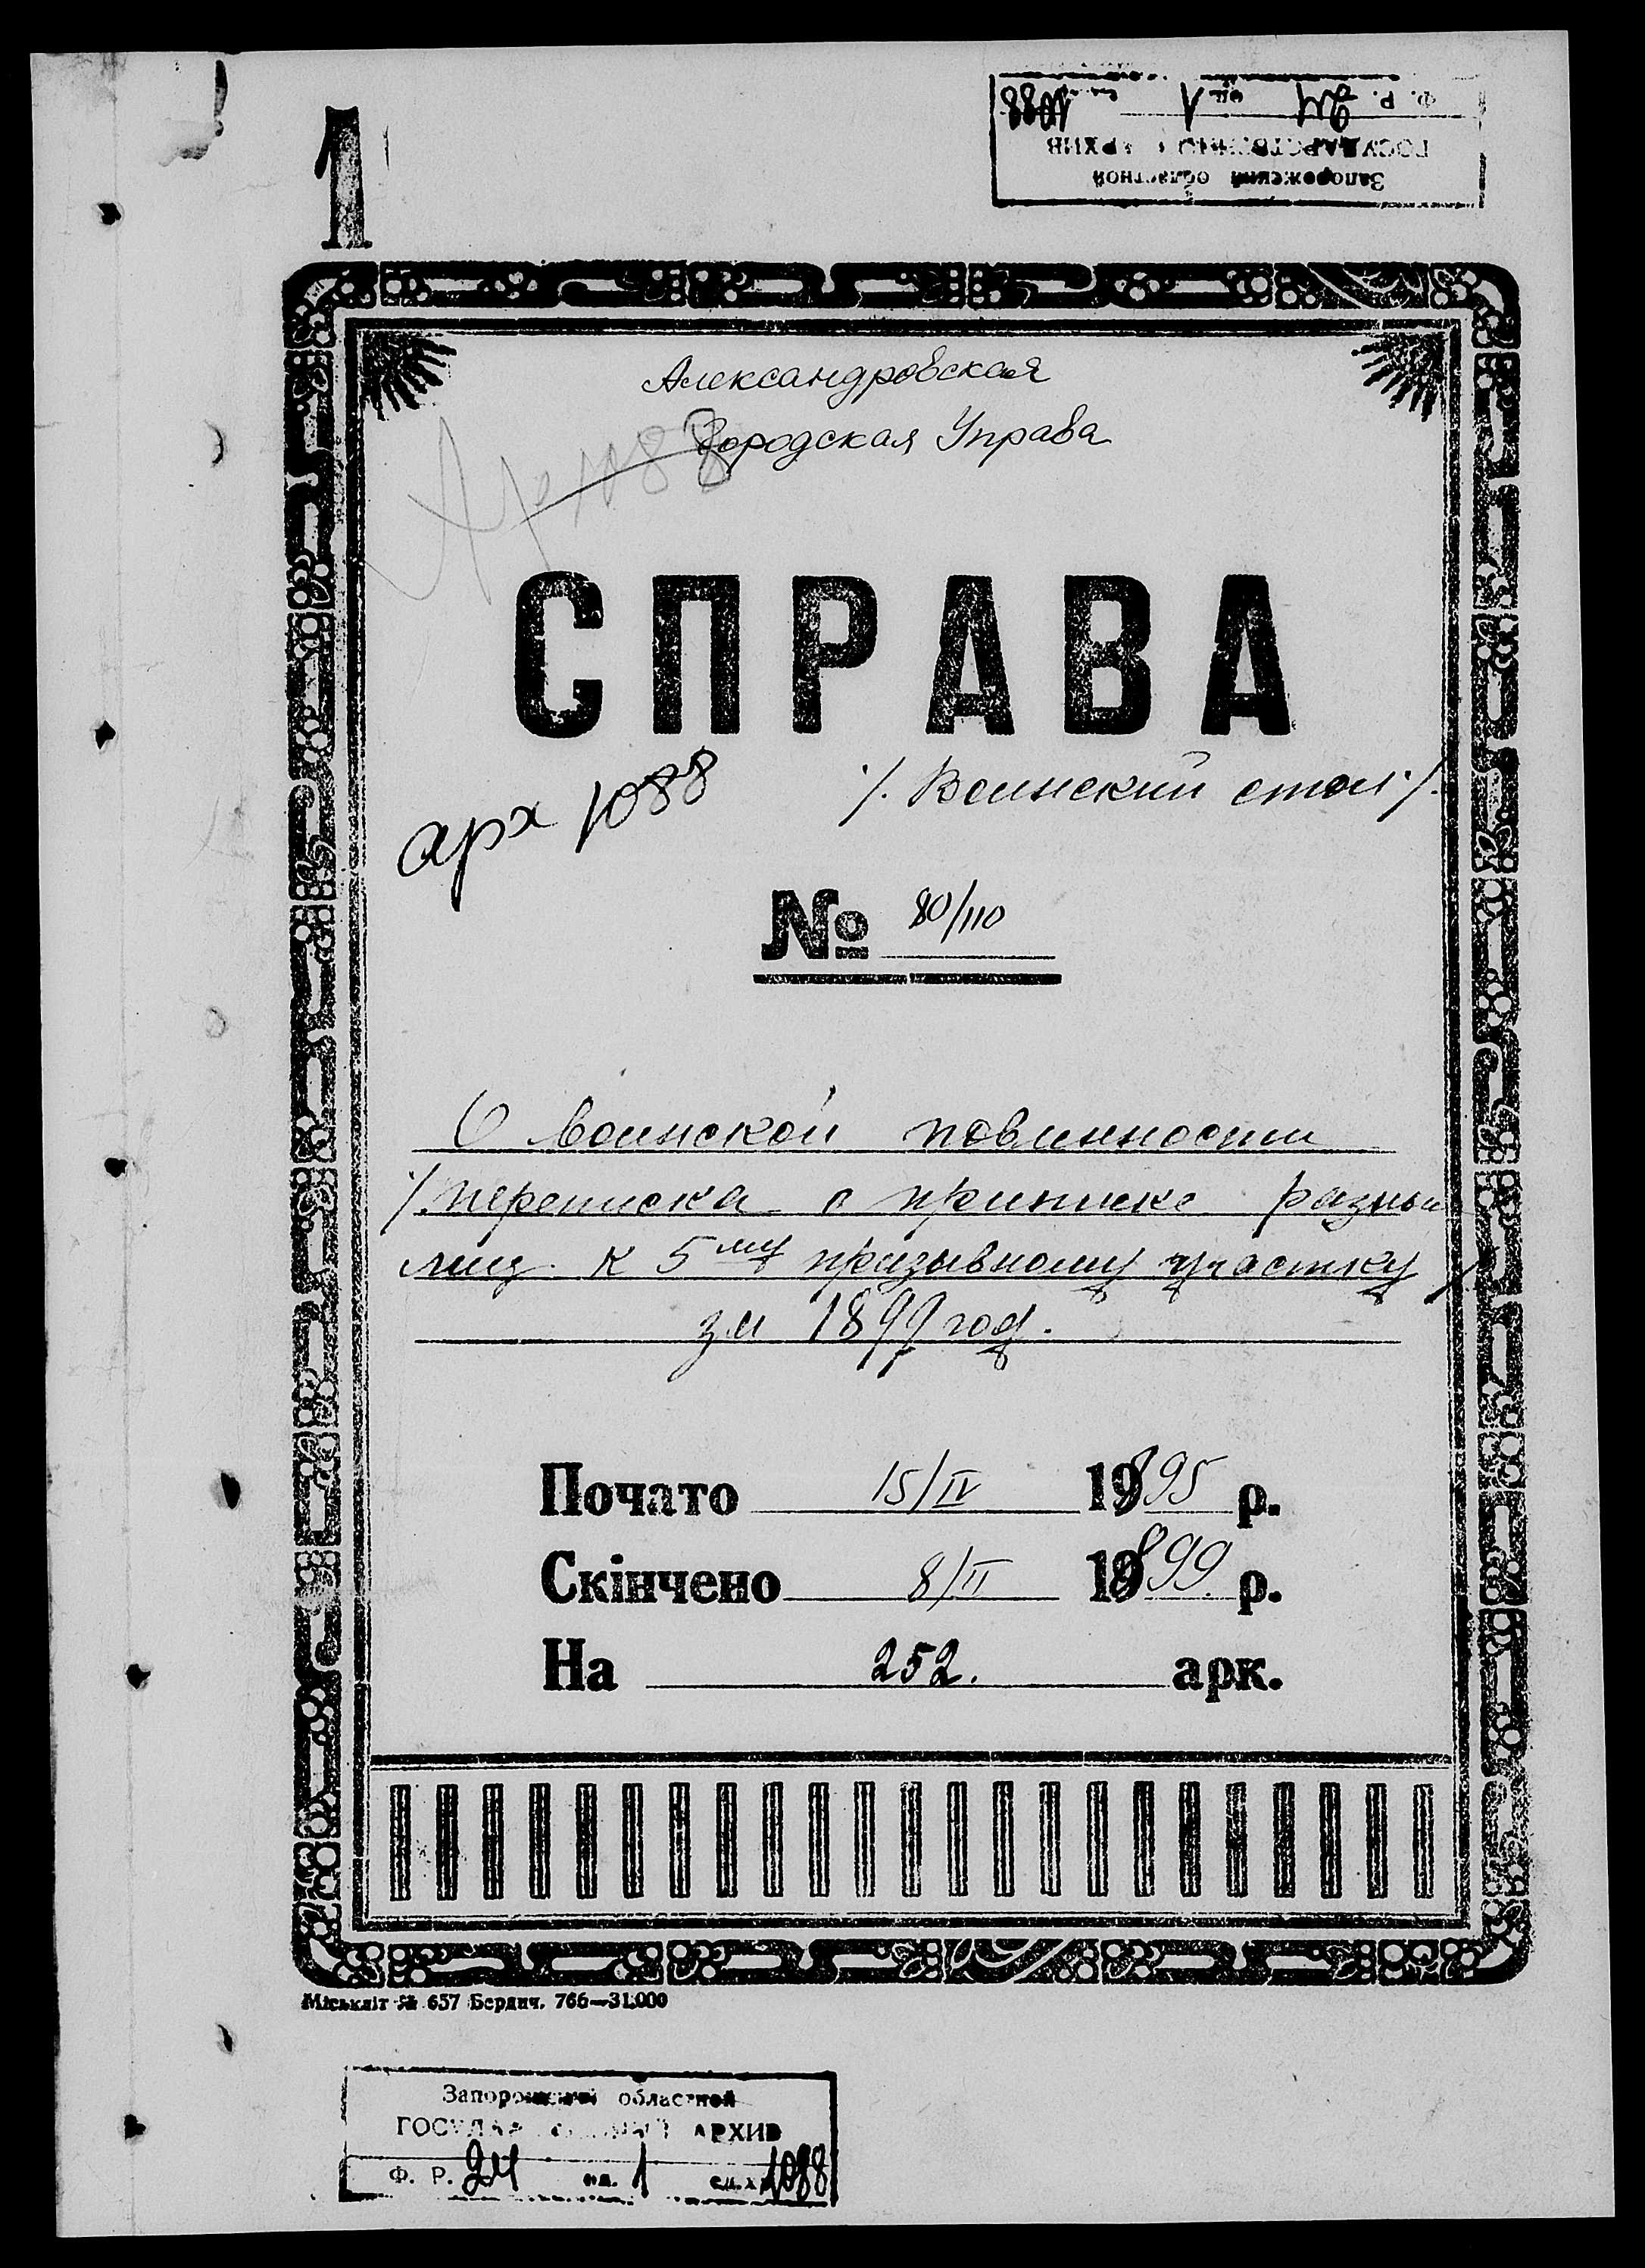 1
Запорожский областной
ГОСУДАРСТВЕННЫЙ АРХИВ
Ф. Р. 24 оп. 1 ед. хр. 1088
Александровская
Городская Управа
СПРАВА
арх 1088
/. Воинский стол ./.
№ 80/110
О воинской повинности
/. переписка о приписке разных
лиц к 5му призывному участку /.
за 1899 год.
Почато 15/IV 1895 р.
Скінчено 8/II 1899 р.
На 252. арк.
Міськліт № 657 Бердич. 766—31.000
Запорожский областной
ГОСУДАРСТВЕННЫЙ АРХИВ
Ф. Р. 24 оп. 1 ед. хр. 1088